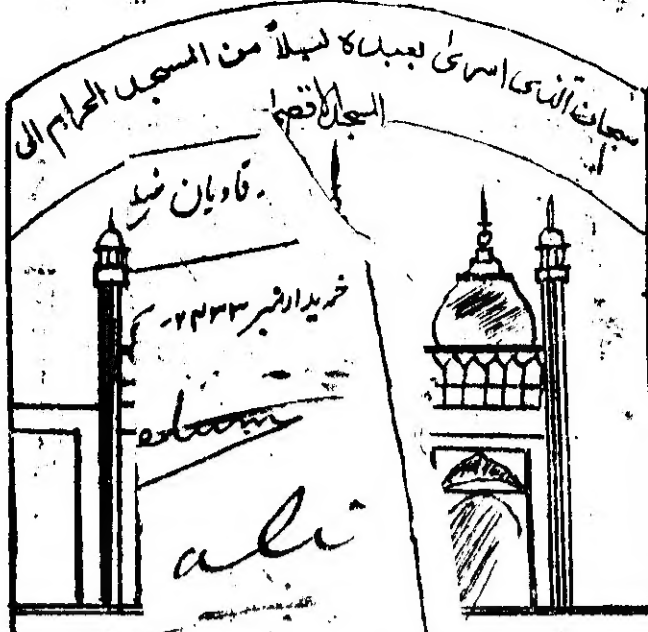 سبحان الذی اسریٰ بعبدہ لیلاً من المسجد الحرام الی
المسجد الاقصیٰ
قادیان
خریدار نمبر ۲۴۳۳
ali